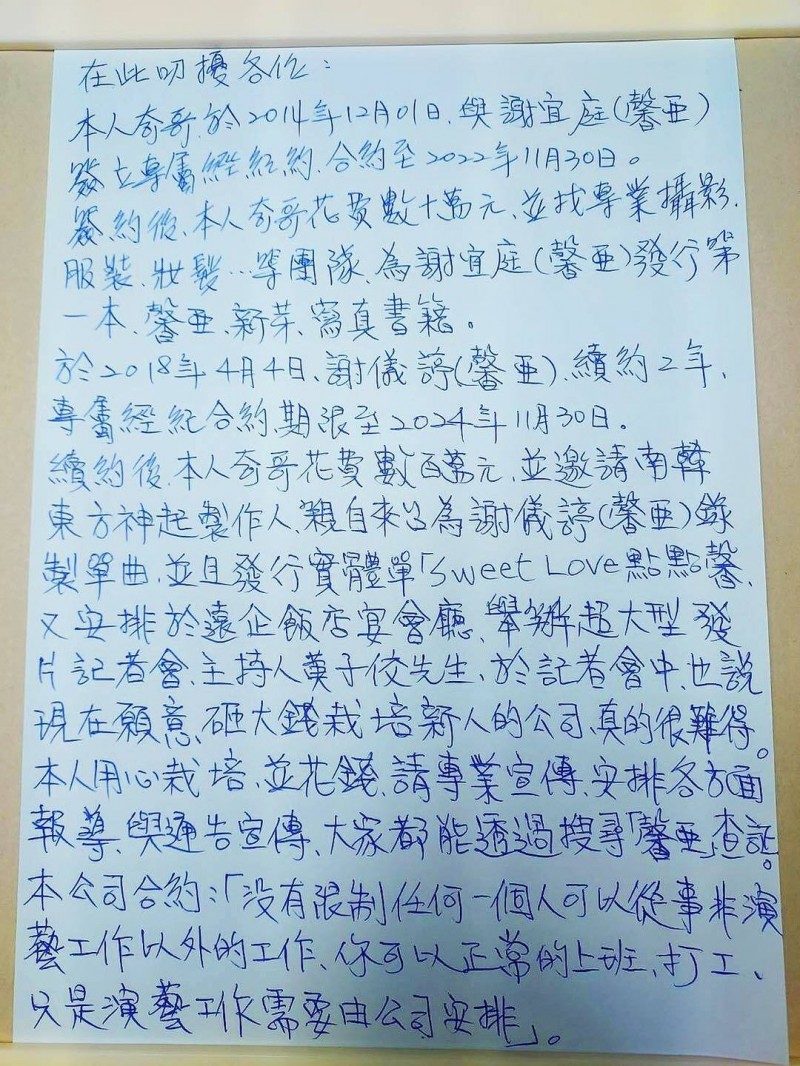 在此叨擾各位：
本人奇哥、於2014年12月01日、與謝宜庭(馨亜)
簽立專屬經紀約、合約至2022年11月30日。
簽約後、本人奇哥花費數十萬元、並找專業攝影、
服裝、妝髮…等團隊、為謝宜庭(馨亜)發行第
一本、馨亜、新芽、寫真書籍。
於2018年4月4日、謝儀諄(馨亜)、續約2年、
專屬經紀合約、期限至2024年11月30日。
續約後、本人奇哥花費數百萬元、並邀請南韓
東方神起製作人、親自來台為謝儀諄(馨亜)錄
製單曲、並且發行實體單「Sweet Love點點馨、
又安排於遠企飯店宴會廳、舉辦超大型發
片記者會、主持人黃子佼先生、於記者會中、也說
現在願意、砸大錢栽培新人的公司、真的很難得。
本人用心栽培、並花錢、請專業宣傳、安排各方面
報導、與通告宣傳、大家都能透過搜尋「馨亜」查証。
本公司合約：「沒有限制任何一個人可以從事非演
藝工作以外的工作、你可以正常的上班、打工、
只是演藝工作需要由公司安排」。